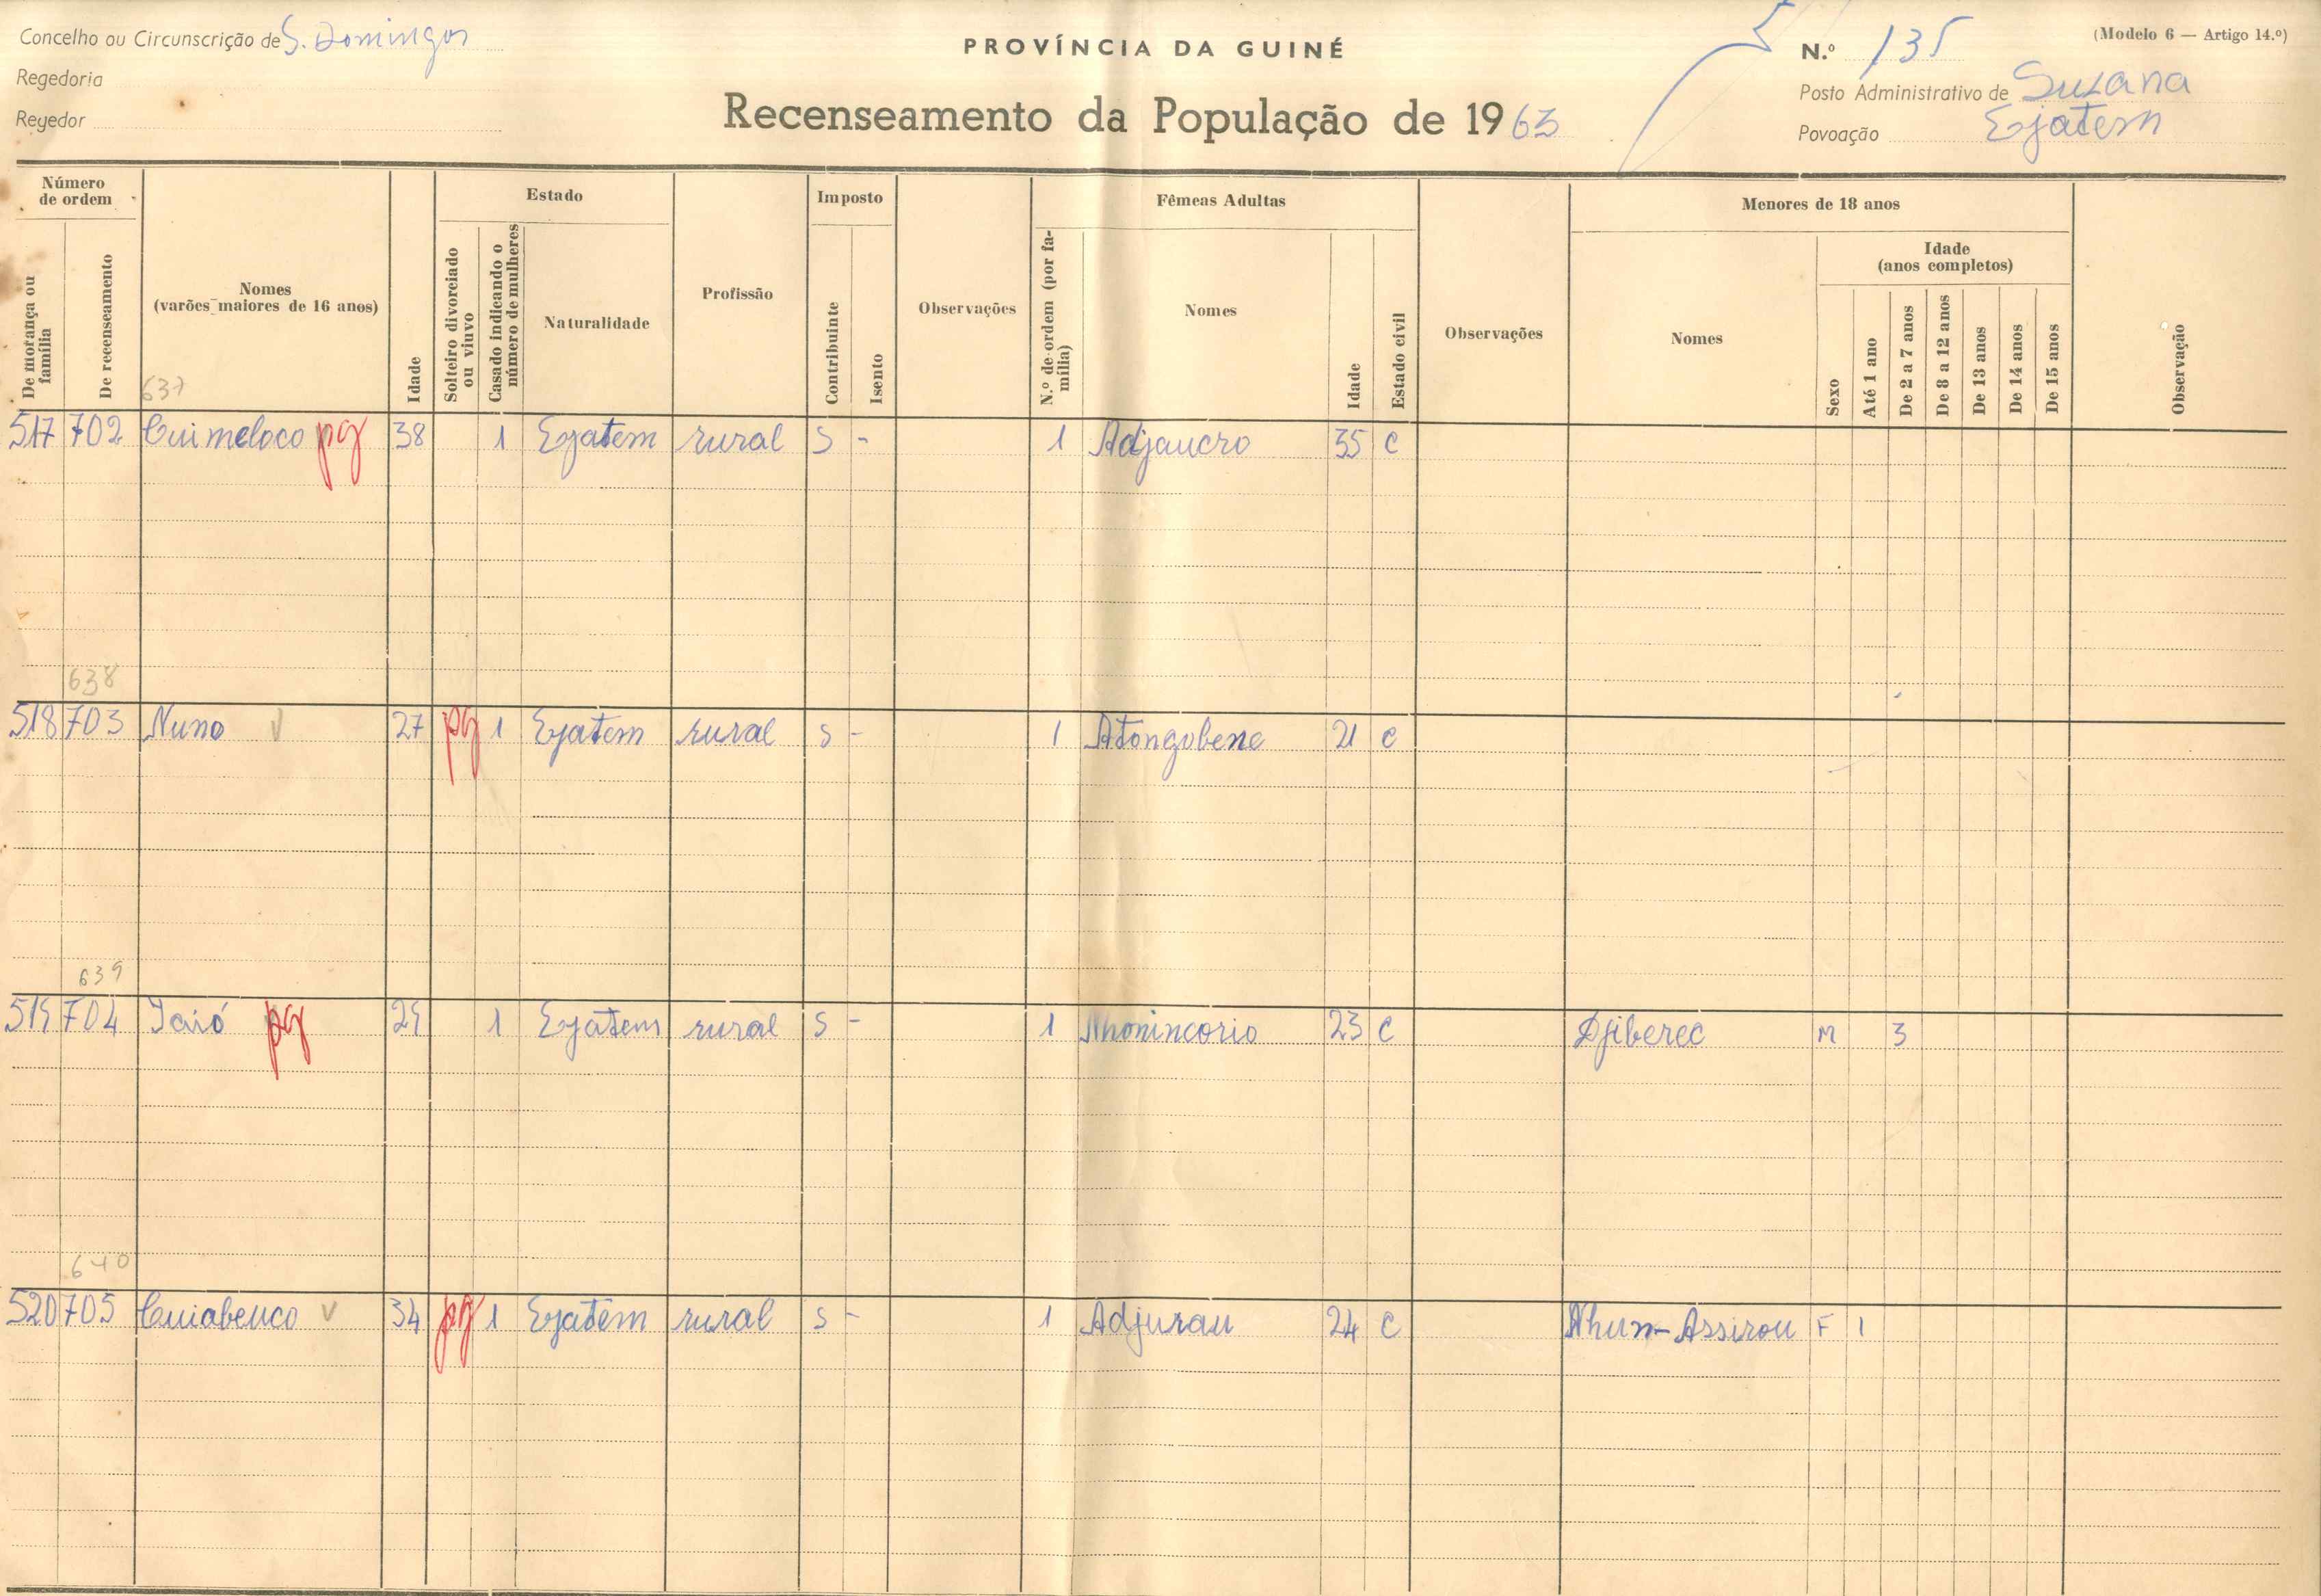 Concelho ou Circunscrição de S. Domingos
PROVÍNCIA DA GUINÉ
N.º 135
(Modelo 6 — Artigo 14.º)
Regedoria
Posto Administrativo de Suzana
Regedor
Recenseamento da População de 1963
Povoação Egatem
Número de ordem
Estado
Imposto
Fêmeas Adultas
Menores de 18 anos
De morança ou família
De recenseamento
Nomes (varões maiores de 16 anos)
Idade
Solteiro divorciado ou viuvo
Casado indicando o número de mulheres
Naturalidade
Profissão
Contribuinte
Isento
Observações
N.º de ordem (por família)
Nomes
Idade
Estado civil
Observações
Nomes
Sexo
Idade (anos completos)
Até 1 ano
De 2 a 7 anos
De 8 a 12 anos
De 13 anos
De 14 anos
De 15 anos
Observação
637
517 702 Cuimeloco pg 38 1 Egatem rural S - 1 Adjaucro 35 C
638
518 703 Nuno V 27 pg 1 Egatem rural S - 1 Atongobene 21 C
639
519 704 Iaió pg 29 1 Egatem rural S - 1 Nhonincorio 23 C Djiberec M 3
640
520 705 Cuiabenco V 34 pg 1 Egatem rural S - 1 Adjurau 24 C Nhun-Assirou F 1